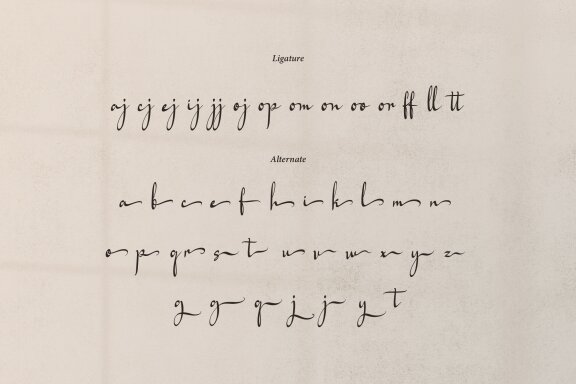 Ligature
aj cj ej ij jj oj op om on oo or ff ll tt
Alternate
a b c e f h i k l m n
o p q r s t u v w x y z
g g q j j y t